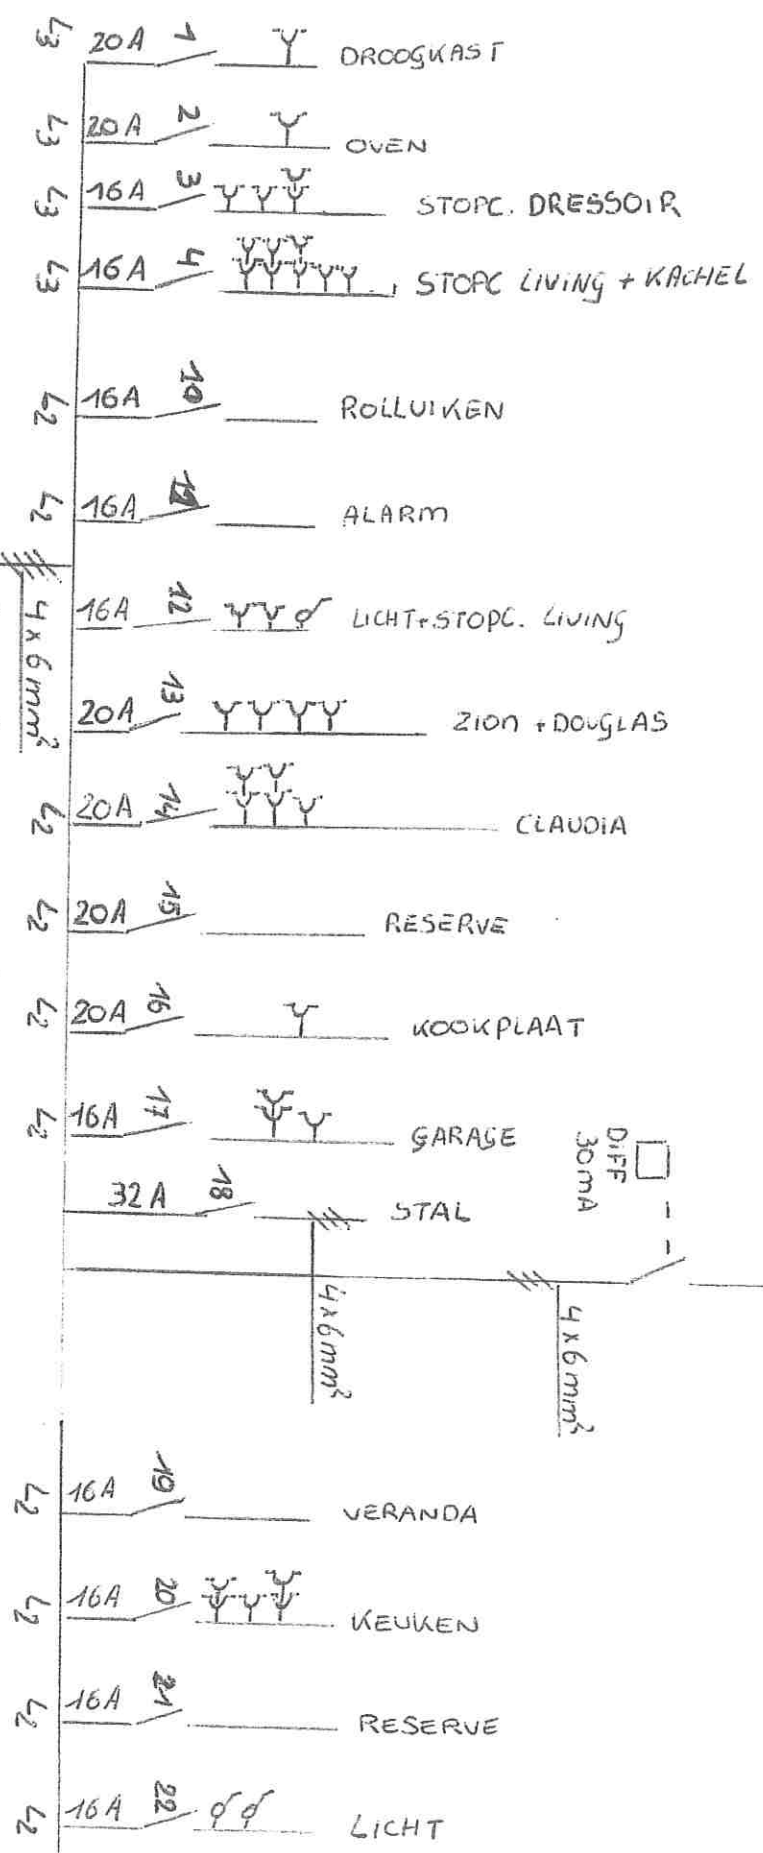 L3 20A 1 DROOGKAST
L3 20A 2 OVEN
L3 16A 3 STOPC. DRESSOIR
L3 16A 4 STOPC LIVING + KACHEL
L2 16A 10 ROLLUIKEN
L2 16A 11 ALARM
4x6mm²
16A 12 LICHT+STOPC. LIVING
20A 13 ZION + DOUGLAS
L2 20A 14 CLAUDIA
L2 20A 15 RESERVE
L2 20A 16 KOOKPLAAT
L2 16A 17 GARAGE
DIFF
30mA
32A 18 STAL
4x6mm²
4x6mm²
L2 16A 19 VERANDA
L2 16A 20 KEUKEN
L2 16A 21 RESERVE
L2 16A 22 LICHT